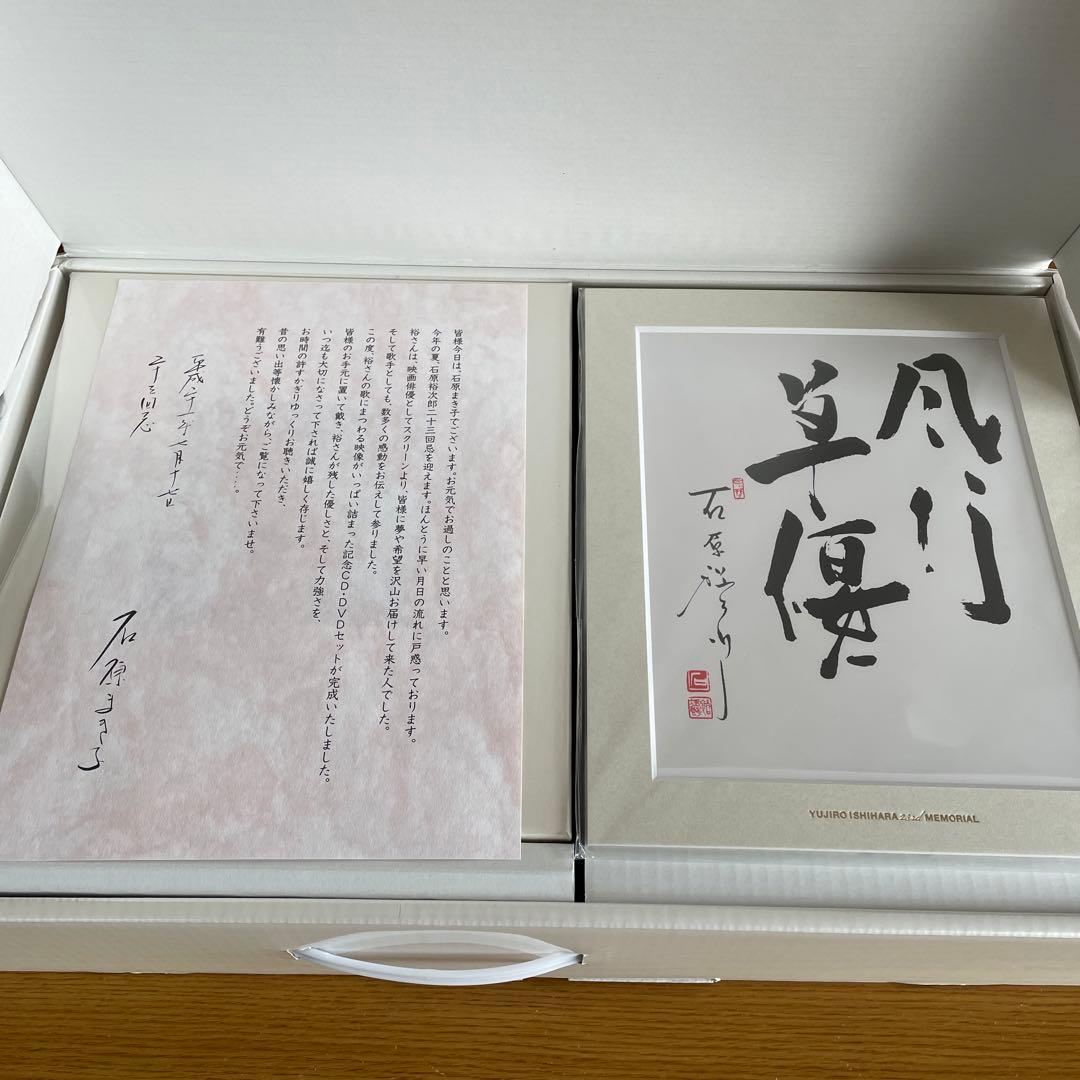 皆様今日は、石原まき子でございます。お元気でお過しのことと思います。
今年の夏、石原裕次郎二十三回忌を迎えます。ほんとうに早い月日の流れに戸惑っております。
裕さんは、映画俳優としてスクリーンより、皆様に夢や希望を沢山お届けして来た人でした。
そして歌手としても、数多くの感動をお伝えして参りました。
この度、裕さんの歌にまつわる映像がいっぱい詰まった記念CD・DVDセットが完成いたしました。
皆様のお手元に置いて戴き、裕さんが残した優しさと、そして力強さを、
いつ迄も大切になさって下されば誠に嬉しく存じます。
お時間の許すかぎりゆっくりお聴きいただき、
昔の思い出等懐かしみながら、ご覧になって下さいませ。
有難うございました。どうぞお元気で‥‥。
平成二十一年七月十七日
二十三回忌
石原まき子
風行
草偃
石原裕次郎
YUJIRO ISHIHARA 23rd MEMORIAL